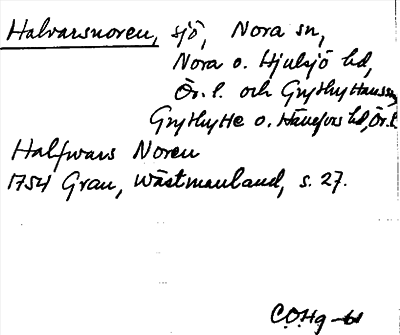 Halvarsnoren, sjö, Nora sn,
Nora o. Hjulsjö hd,
Ör. l. och Grythyttans sn,
Grythytte o. Hällefors hd, Ör. l.
Halfwars Noren
1754 Grau, Wästmanland, s. 27.
C.O.Hg